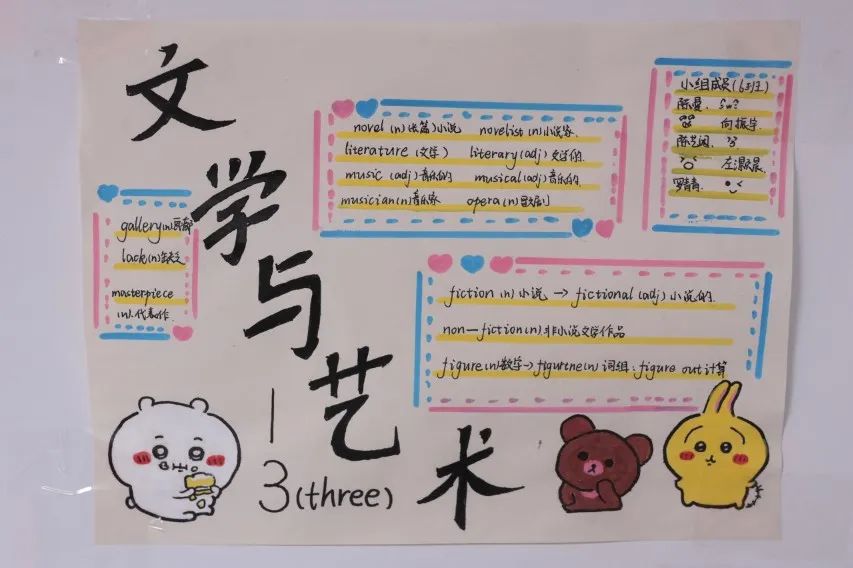 文学与艺术
3(three)
gallery(n)画廊
lack(n)缺乏
masterpiece
(n).代表作.
novel (n)(长篇)小说 novelist (n)小说家.
literature (文学) literary(adj)文学的.
music (adj)音乐的 musical(adj)音乐的.
musician(n)音乐家 opera(n)
小组成员
陈曼.
向振宇.
陈艺闻.
左
罗青青.
fiction (n)小说 → fictional(adj)小说的.
non—fiction(n)非小说文学作品
figure(n)数学→ (n) 词组:figure out计算